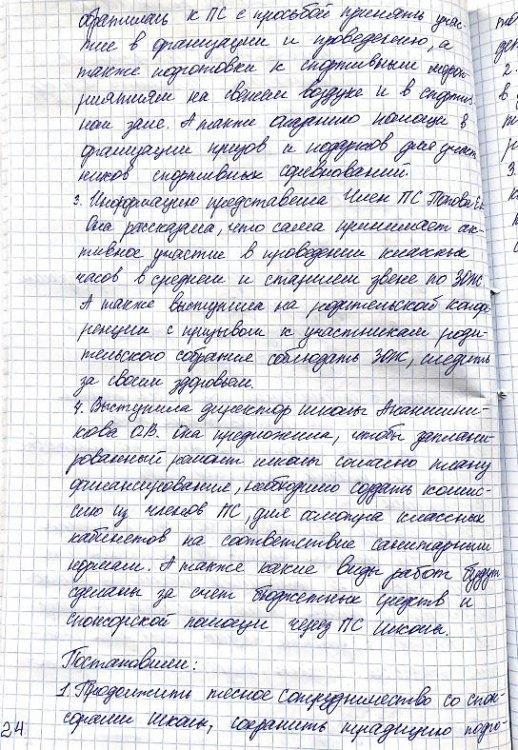 обратилась к ПС с просьбой принять учас-
тие в организации и проведению, а
также подготовки к спортивным мероп-
риятиям на свежем воздухе и в спортив-
ном зале. А также оказанию помощи в
организации призов и подарков для участ-
ников спортивных соревнований.
3. Информацию представила Член ПС Попова Е.
Она рассказала, что сама принимает ак-
тивное участие в проведении классных
часов в среднем и старшем звене по ЗОЖ
А также выступила на родительской конфе-
ренции с призывом к участникам роди-
тельского собрания соблюдать ЗОЖ, следить
за своим здоровьем.
4. Выступила директор школы
О.В. Она предложила, чтобы заплани-
рованный ремонт школы согласно плану
финансирование, необходимо создать комис-
сию из членов ПС, для осмотра классных
кабинетов на соответствие санитарным
нормам. А также какие виды работ будут
сделаны за счет бюджетных средств и
спонсорской помощи через ПС школы.
Постановили:
1. Продолжить тесное сотрудничество со спон-
сорами школы, сохранить традицию подго-
24